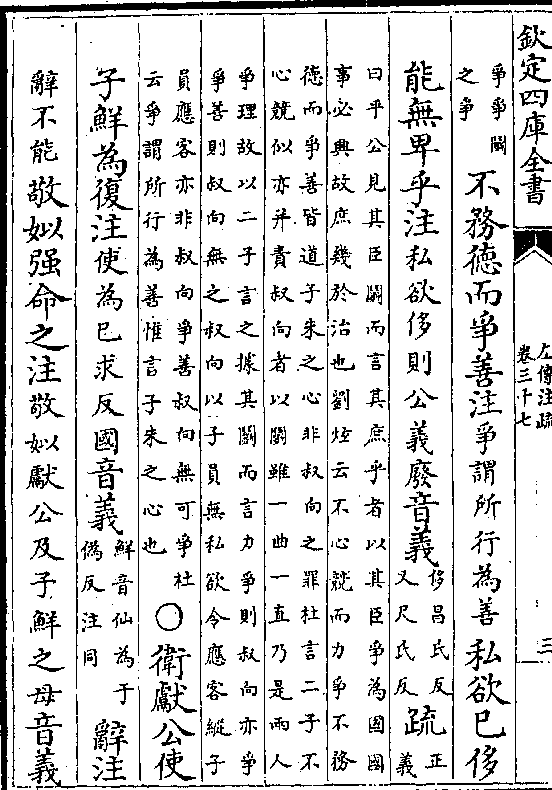 欽定四庫全書
左傳注疏
卷三十七
三
爭爭鬭
之爭
不務德而爭善注爭謂所行為善私欲已侈
能無卑乎注私欲侈則公義廢音義
侈昌氏反
又尺氏反
疏
正
義
曰平公見其臣鬭而言其庶乎者以其臣爭為國國
事必興故庶幾於治也劉炫云不心競而力爭不務
德而爭善皆道子朱之心非叔向之罪杜言二子不
心競似亦并責叔向者以鬭雖一曲一直乃是兩人
爭理故以二子言之據其鬭而言力爭則叔向亦爭
爭善則叔向無之叔向以子員無私欲令應客縱子
員應客亦非叔向爭善叔向無可爭杜
云爭謂所行為善惟言子朱之心也
○衛獻公使
子鮮為復注使為已求反國音義
鮮音仙為于
偽反注同
辭注
辭不能敬姒强命之注敬姒獻公及子鮮之母音義